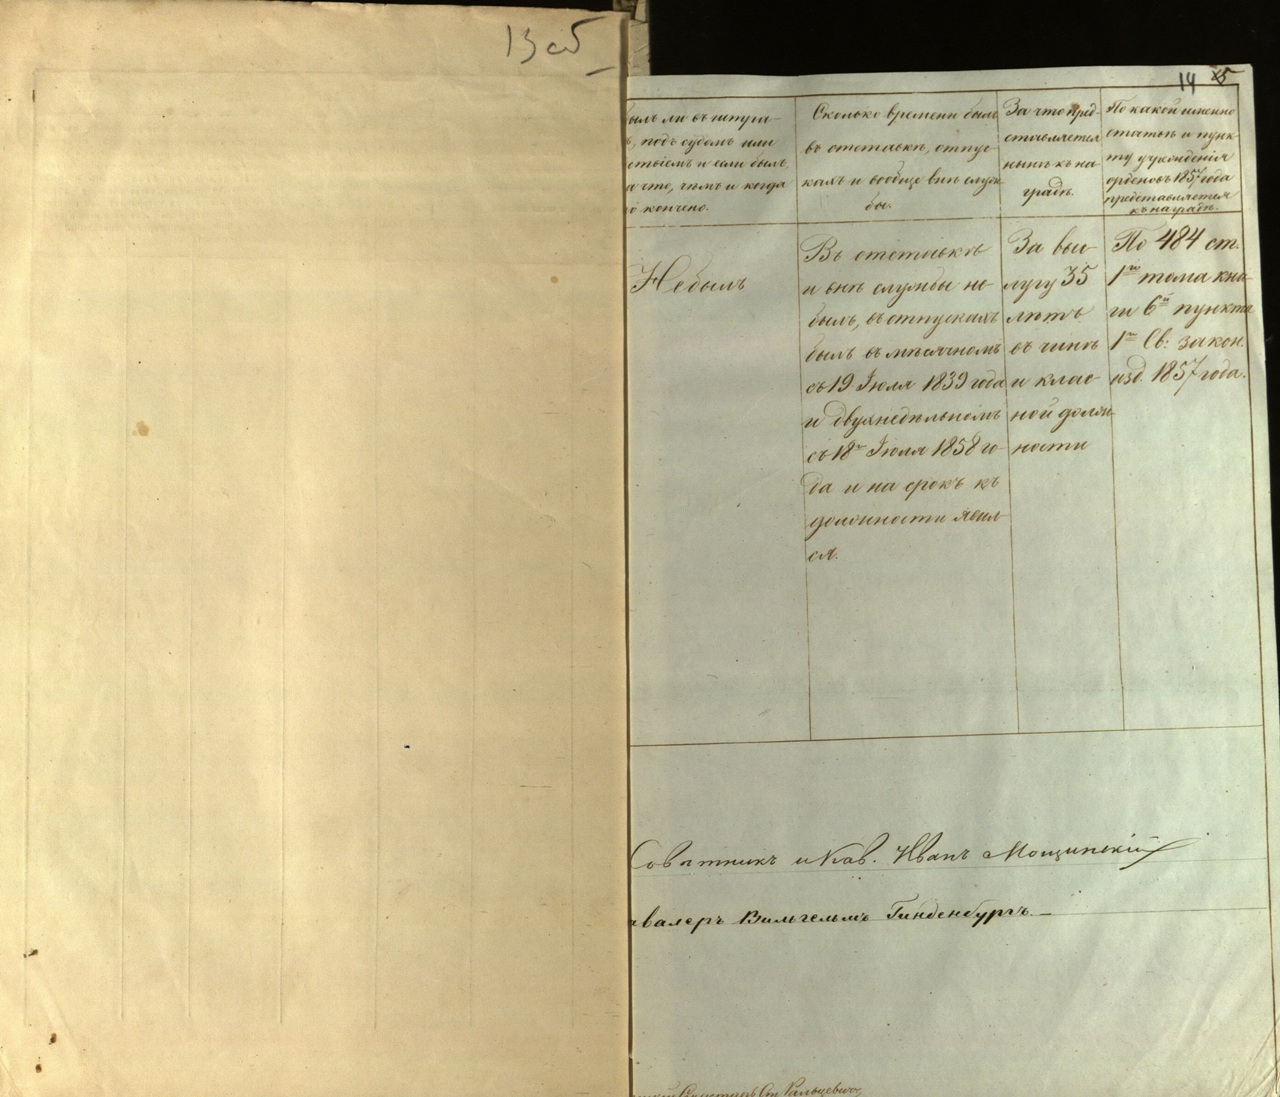 13 об
14 15
былъ ли въ штра-
ъ, подъ судомъ или
ствіемъ и если былъ,
а что, чѣмъ и когда
кончено.
Сколько времени былъ
въ отставкѣ, отпус-
кахъ и вообще внѣ служ
бы.
За что пред-
ставляется
нынѣ къ на
градѣ.
По какой именно
статьѣ и пунк-
ту учрежденія
орденовъ 1857 года
представляется
къ наградѣ.
Небылъ
Въ отставкѣ
и внѣ службы не
былъ, въ отпускахъ
былъ въ мѣсячномъ
съ 19 Іюля 1839 года
и двухнедѣльномъ
съ 18го Іюля 1858 го-
да и на срокъ къ
должности явил-
ся.
За выс-
лугу 35
лѣтъ
въ чинѣ
и клас-
ной долж-
ности
По 484 ст.
1го тома кни-
ги 6й пункта
1го Св: закон.
изд. 1857 года.
Совѣтникъ и Кав. Иванъ Мощинскій
авалеръ Вильгельмъ Гинденбургъ.